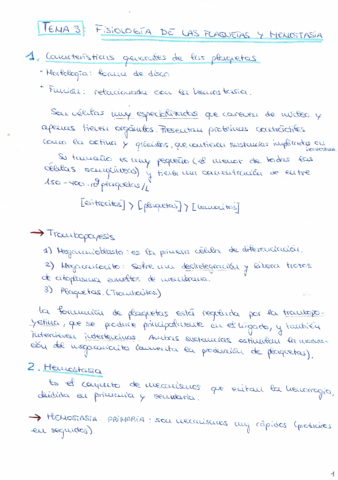 TEMA 3: FISIOLOGÍA DE LAS PLAQUETAS Y HEMOSTASIA
1. Características generales de las plaquetas
• Morfología: forma de disco
• Función: relacionada con la hemostasia.
Son células muy especializadas que carecen de núcleo y
apenas tienen orgánulos. Presentan proteínas contráctiles
como la actina y gránulos, que contienen sustancias implicadas en
Su tamaño es muy pequeño (el menor de todas las
células sanguíneas) y tiene una concentración de entre
150-400·10⁹ plaquetas/L
[eritrocitos] > [plaquetas] > [leucocitos]
→ Trombopoyesis
1) Megacarioblasto: es la primera célula de diferenciación.
2) Megacariocito: sufre una desintegración y libera trozos
de citoplasma envueltos de membrana.
3) Plaquetas. (Trombocitos)
La formación de plaquetas está regulada por la trombopo-
yetina, que se produce principalmente en el hígado, y también
intervienen interleucinas. Ambas sustancias estimulan la madura-
ción del megacariocito (aumenta la producción de plaquetas).
2. Hemostasia
Es el conjunto de mecanismos que evitan la hemorragia,
dividida en primaria y secundaria.
→ HEMOSTASIA PRIMARIA: son mecanismos muy rápidos (producidos
en segundos).
1